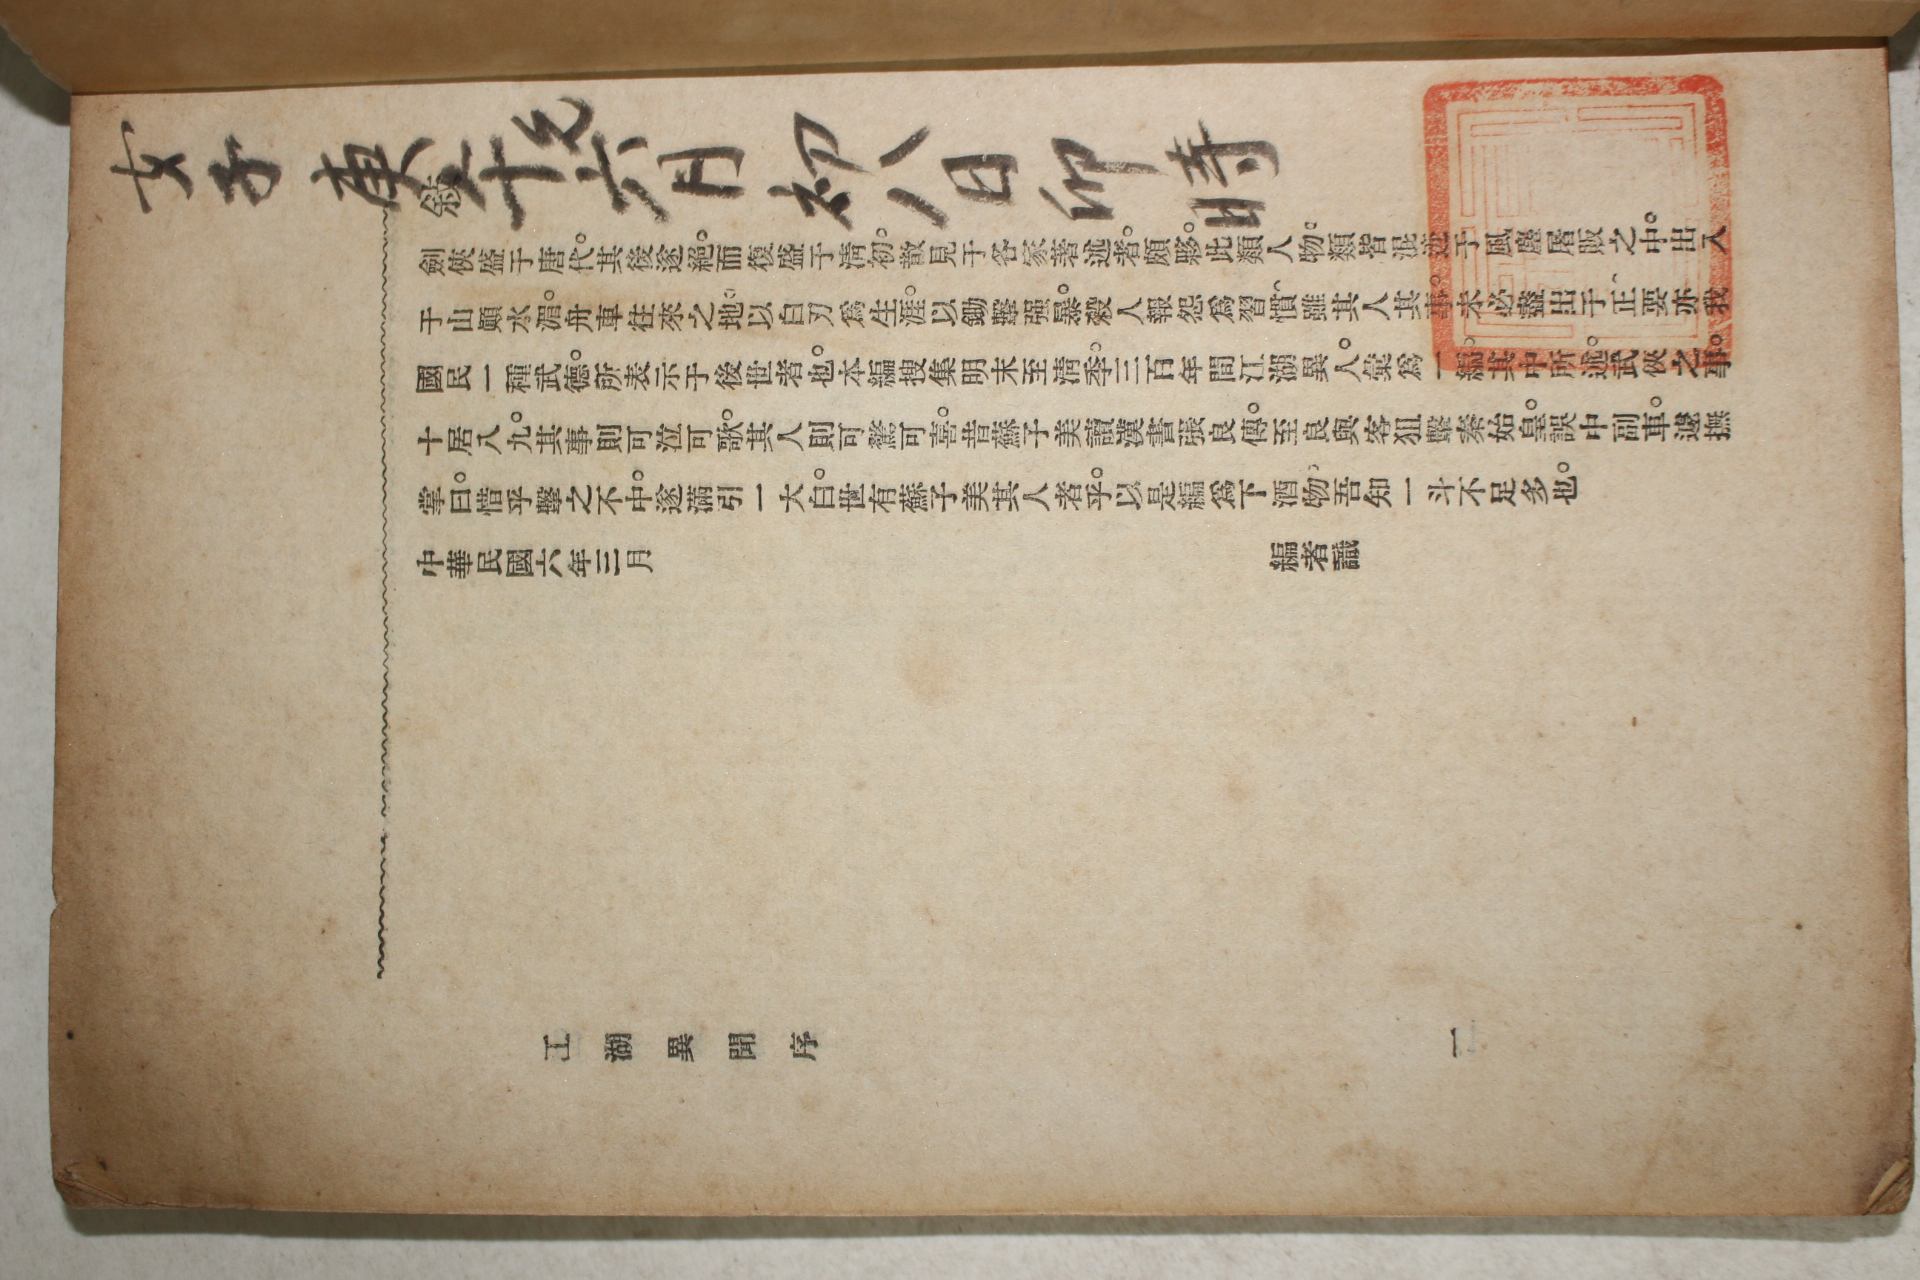 女子 庚午 六月 初八日 卯時
敍
劍俠盛于唐代。其後遂絕。而復盛于淸初。散見于各家著述者。頗夥。此類人物。類皆混迹于風塵屠販之中。出入
于山顚水湄。舟車往來之地。以白刃爲生涯。以鋤擊强暴。殺人報怨爲習慣。雖其人其事。未必盡出于正。要亦我
國民一種武德。所表示于後世者也。本編搜集明末至淸季。三百年間江湖異人。彙爲一編。其中所述。武俠之事。
十居八九。其事則可泣可歌。其人則可驚可喜。昔蘇子美讀漢書張良傳。至良與客狙擊秦始皇。誤中副車。遽撫
掌曰。惜乎擊之不中。遂滿引一大白。世有蘇子美其人者乎。以是編爲下酒物。吾知一斗不足多也。
中華民國六年三月
編者識
江湖異聞序
一